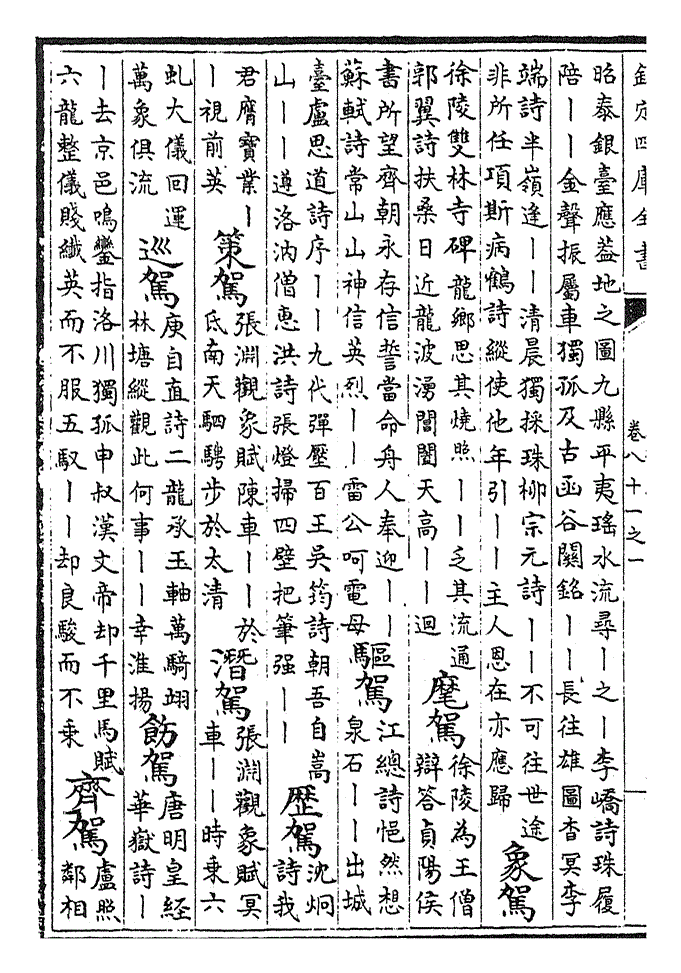 欽定四庫全書
卷八十一之一
昭泰銀臺應葢地之圖九縣平夷瑤水流尋丨之丨李嶠詩珠履
陪丨丨金聲振屬車獨孤及古函谷關銘丨丨長往雄圖杳冥李
端詩半嶺逢丨丨清晨獨採珠柳宗元詩丨丨不可往世途
非所任項斯病鶴詩縱使他年引丨丨主人恩在亦應歸
象駕
徐陵雙林寺碑龍鄉思其燒照丨丨乏其流通
郭翼詩扶桑日近龍波湧閶闔天高丨丨迴
麾駕
徐陵為王僧
辯答貞陽侯
書所望齊朝永存信誓當命舟人奉迎丨丨
蘇軾詩常山山神信英烈丨丨雷公呵電母
驅駕
江總詩悒然想
泉石丨丨出城
臺盧思道詩序丨丨九代彈壓百王吳筠詩朝吾自嵩
山丨丨遵洛汭僧惠洪詩張燈掃四壁把筆强丨丨
歷駕
沈炯
詩我
君膺寶業丨
丨視前英
策駕
張淵觀象賦陳車丨丨於
氐南天駟騁步於太清
潛駕
張淵觀象賦冥
車丨丨時乘六
虬大儀回運
萬象俱流
巡駕
庾自直詩二龍承玉軸萬騎翊
林塘縱觀此何事丨丨幸淮揚
飭駕
唐明皇經
華嶽詩丨
丨去京邑鳴鑾指洛川獨孤申叔漢文帝却千里馬賦
六龍整儀賤纖英而不服五馭丨丨却良駿而不乘
齊駕
盧照
鄰相